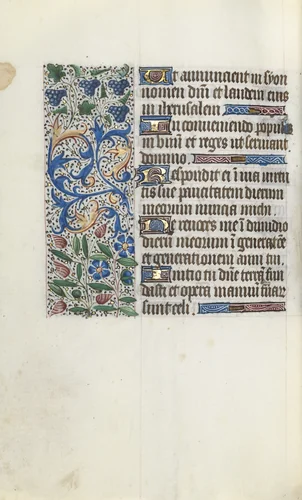 Ut annuncient in syon
nomen dñi et laudem eius
in iherusalem
In conveniendo populos
in unū et reges ut serviant
domino
Respondit ei ī via virtu
tis sue paucitatem dierum
meorum nuncia michi
Ne revoces me ī dimidio
dierū meorum ī generacōe
et generationem anni tui
Initio tu dñe terrā fun
dasti et opera manuū tuar
sunt celi